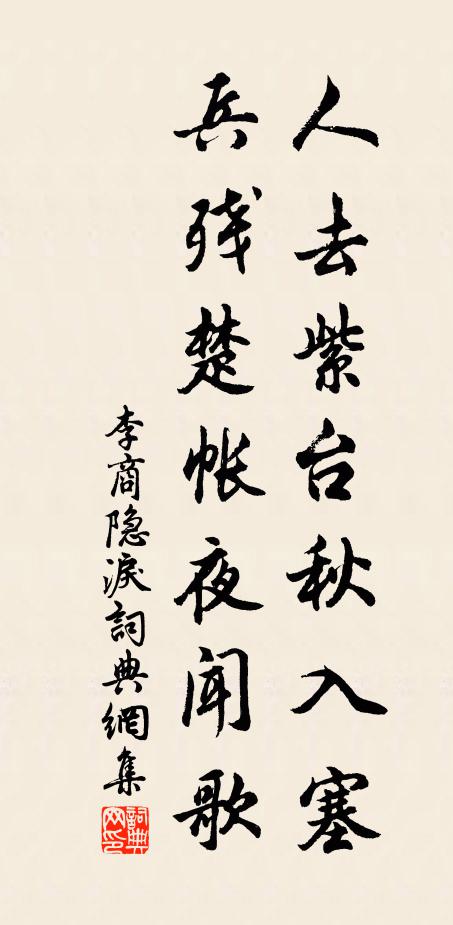 人去紫台秋入塞
兵残楚帐夜闻歌
李商隐淚詞典網集
詞典网印